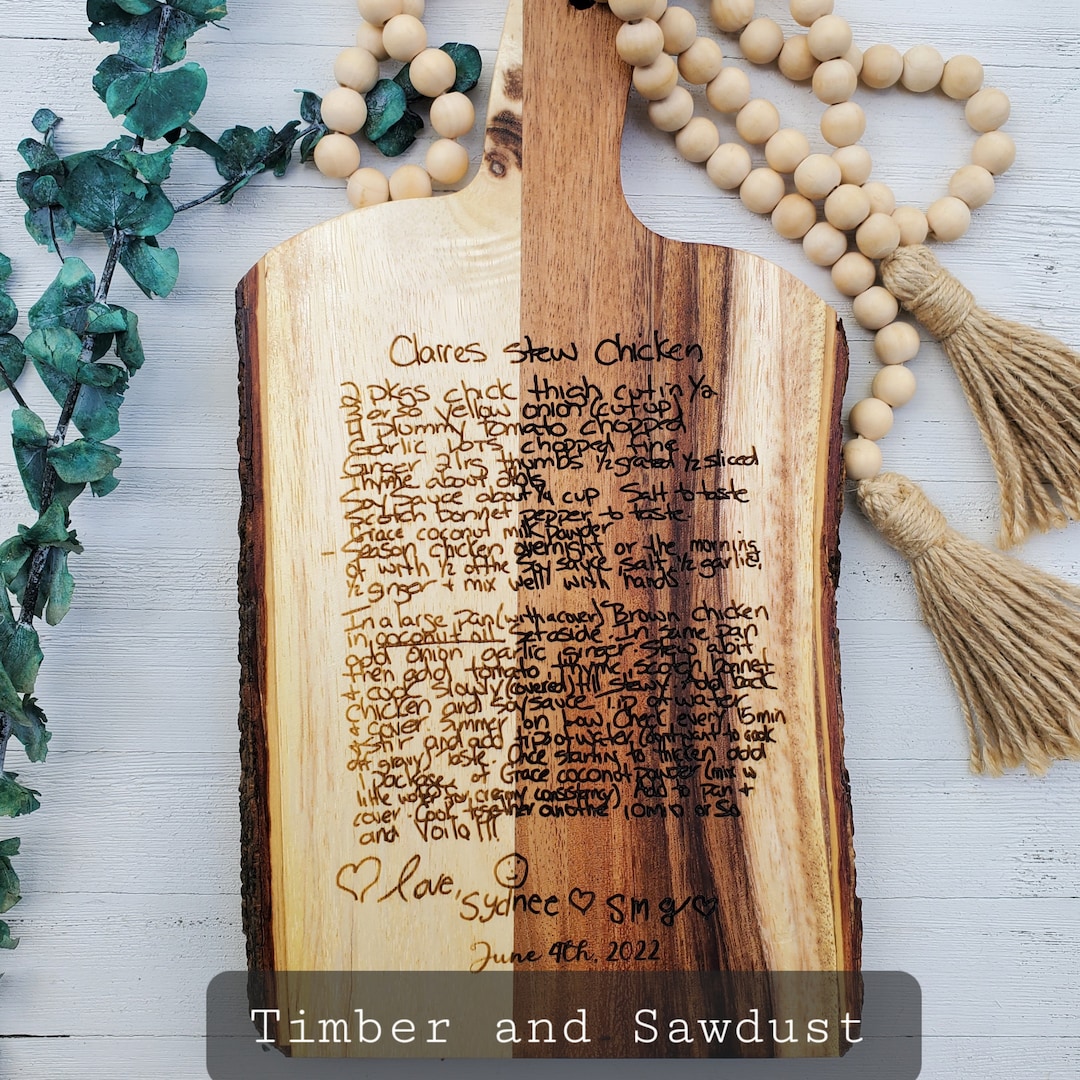 Claires stew chicken
2 pkgs chick thigh cut in 1/2
or so yellow onion (cut up)
plummy tomato chopped
Garlic lots chopped fine
Ginger 2 lrg thumbs 1/2 grated 1/2 sliced
Thyme about
Soy Sauce about 1/4 cup Salt to taste
Scotch bonnet pepper to taste
Grace coconut milk powder
Season chicken overnight or the morning
of with 1/2 of the soy sauce salt, 1/2 garlic,
1/2 ginger + mix well with hands.
In a large pan (with a cover) Brown chicken
in coconut oil set aside. In same pan
add onion garlic ginger. Stew a bit
then add tomato thyme scotch bonnet
+ cook slowly (covered) till stewy. Add back
chicken and soy sauce of water
+ cover. Simmer on Low Check every 15 min
Stir and add of water (don't want to cook
off gravy) taste. Once starting to thicken add
1 package of Grace coconut powder (mix w
little water for creamy consistency) Add to pan +
cover. Cook together another 10 min or so
and Voila!!!
love,
Sydnee smg
June 4th, 2022
Timber and Sawdust